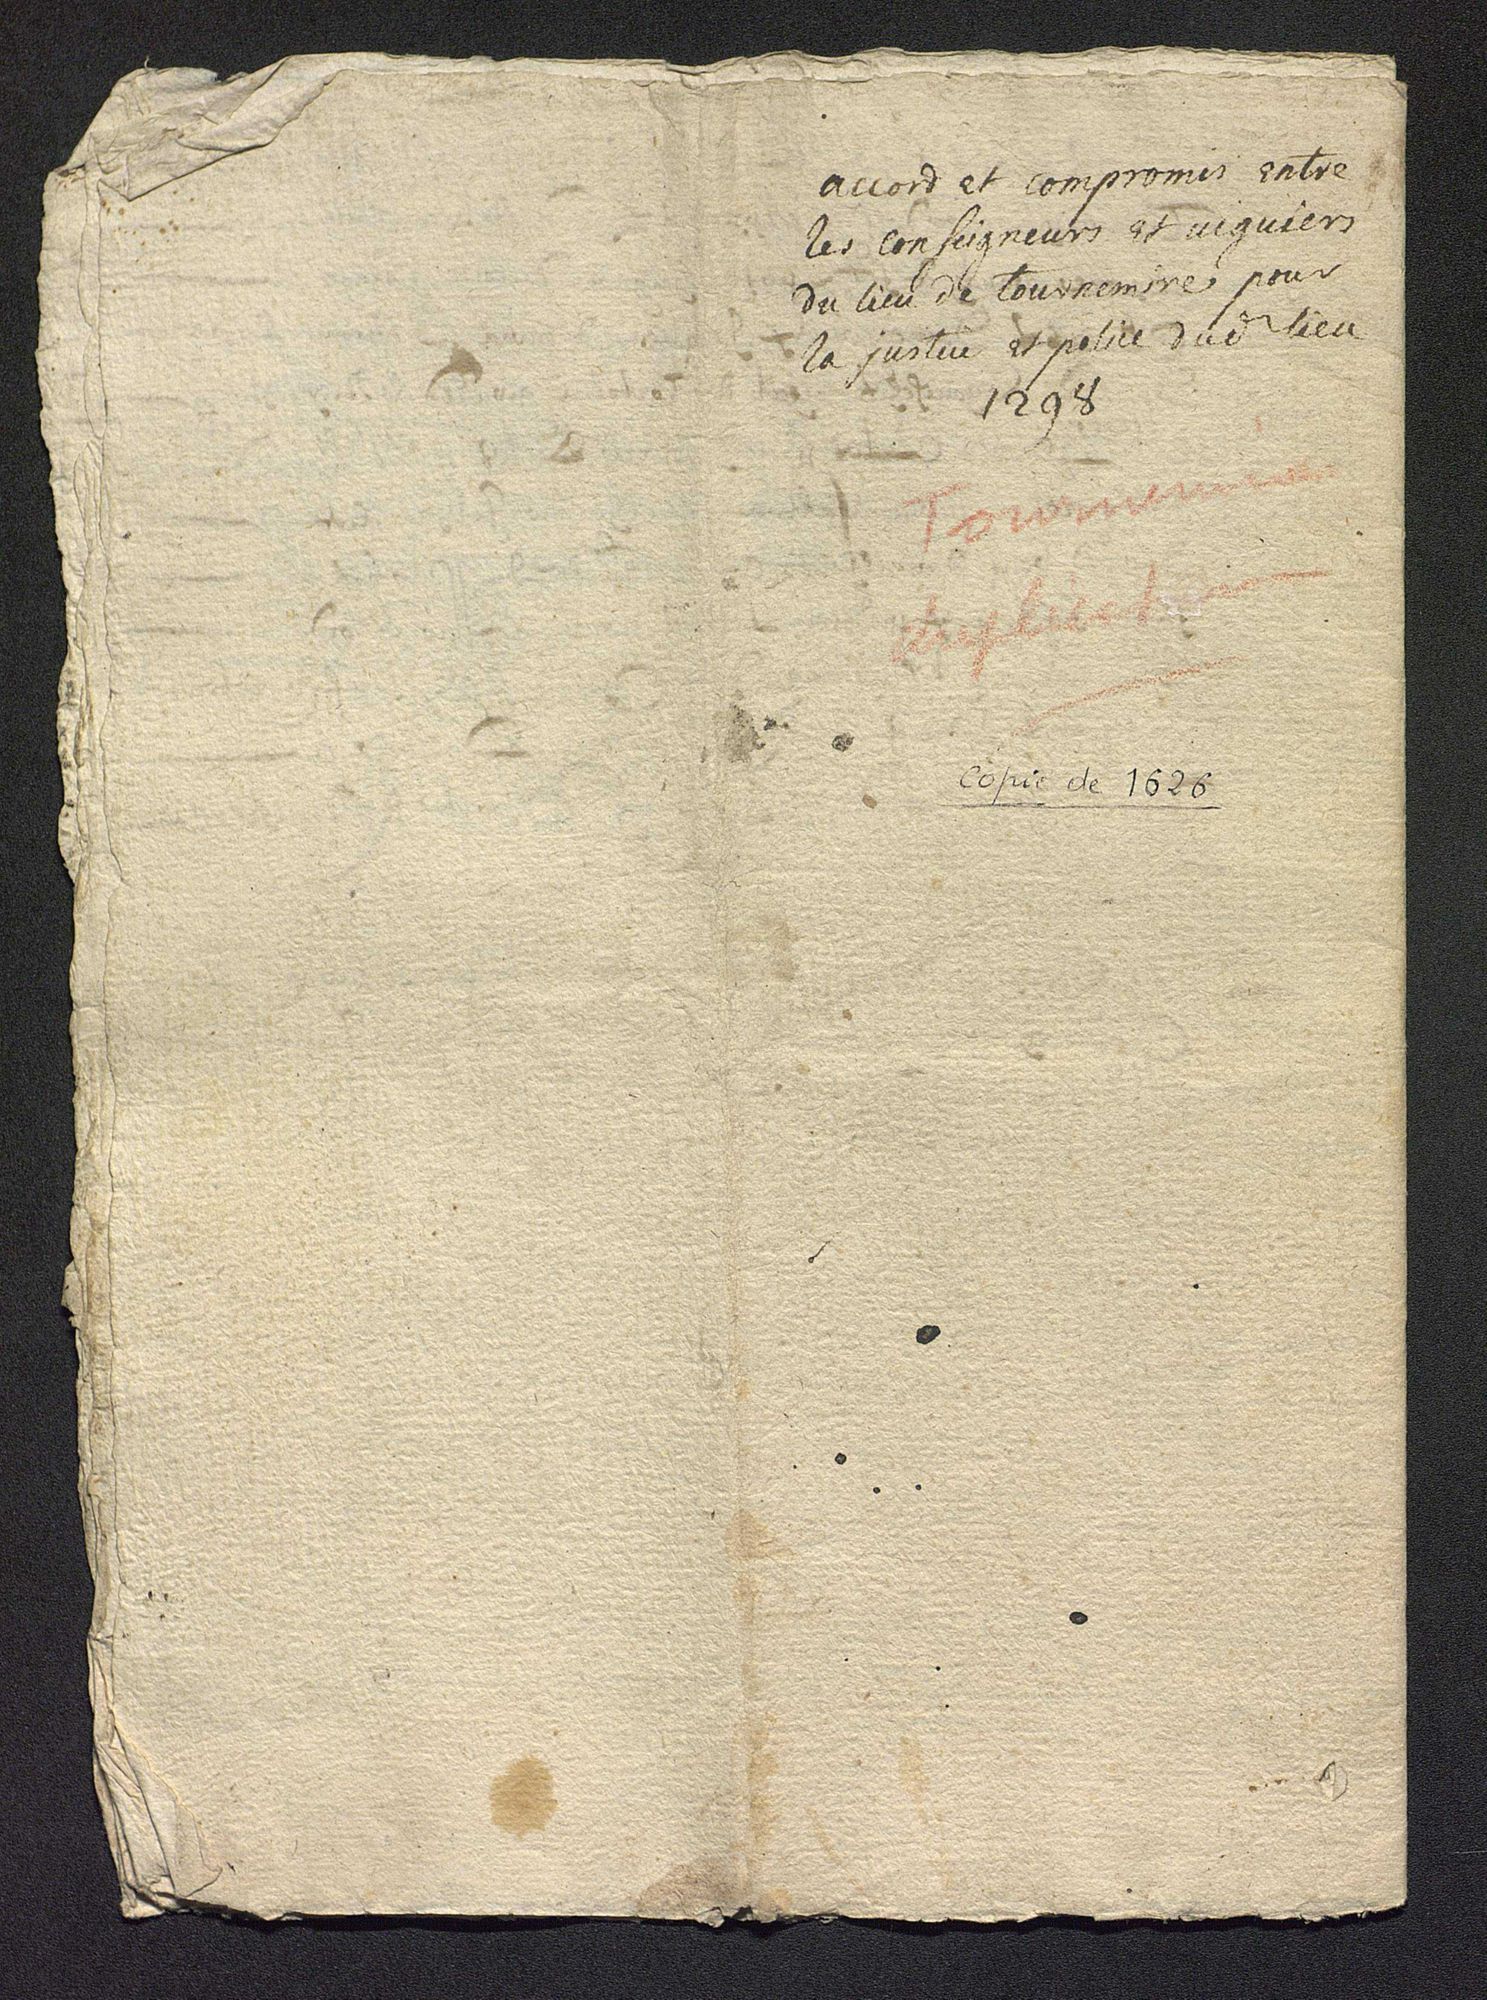 accord et compromis entre
les conseigneurs et viguiers
du lieu de tournemire pour
la justice et police dud lieu
1298
Tournemire
duplicata
Copie de 1626